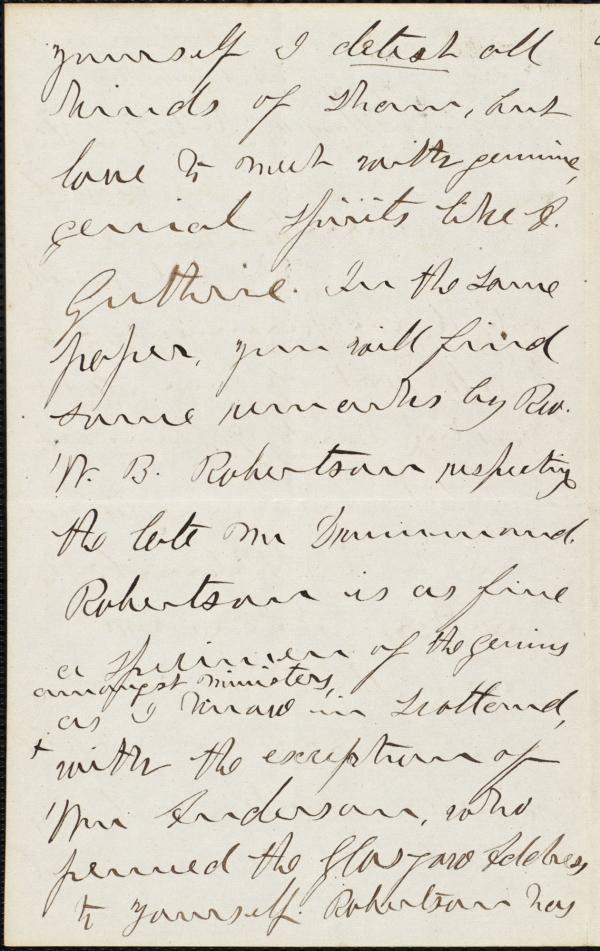 yourself I detest all
kinds of sham, but
love to meet with genuine,
genial spirits like D.
Guthrie. In the same
paper, you will find
some remarks by Rev.
W. B. Robertson respecting
the late Mr Drummond.
Robertson is as fine
a specimen of the genius
amongst ministers,
as I know in Scotland,
+ with the exception of
Wm Anderson, who
penned the Glasgow Address
to yourself. Robertson has